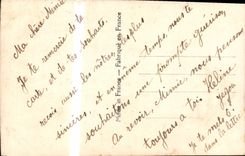 Ma chère Mimie
Je te remercie de la
carte, et de te souhaite,
reçois aussi les nôtres les plus
sincères, et en même temps, nous te
souhaitons une prompte guérison,
Au revoir, Mimie, nous pensons
toujours à toi Hélène
Je te mets 6
dans la lettre
Made in France - Fabriqué en France